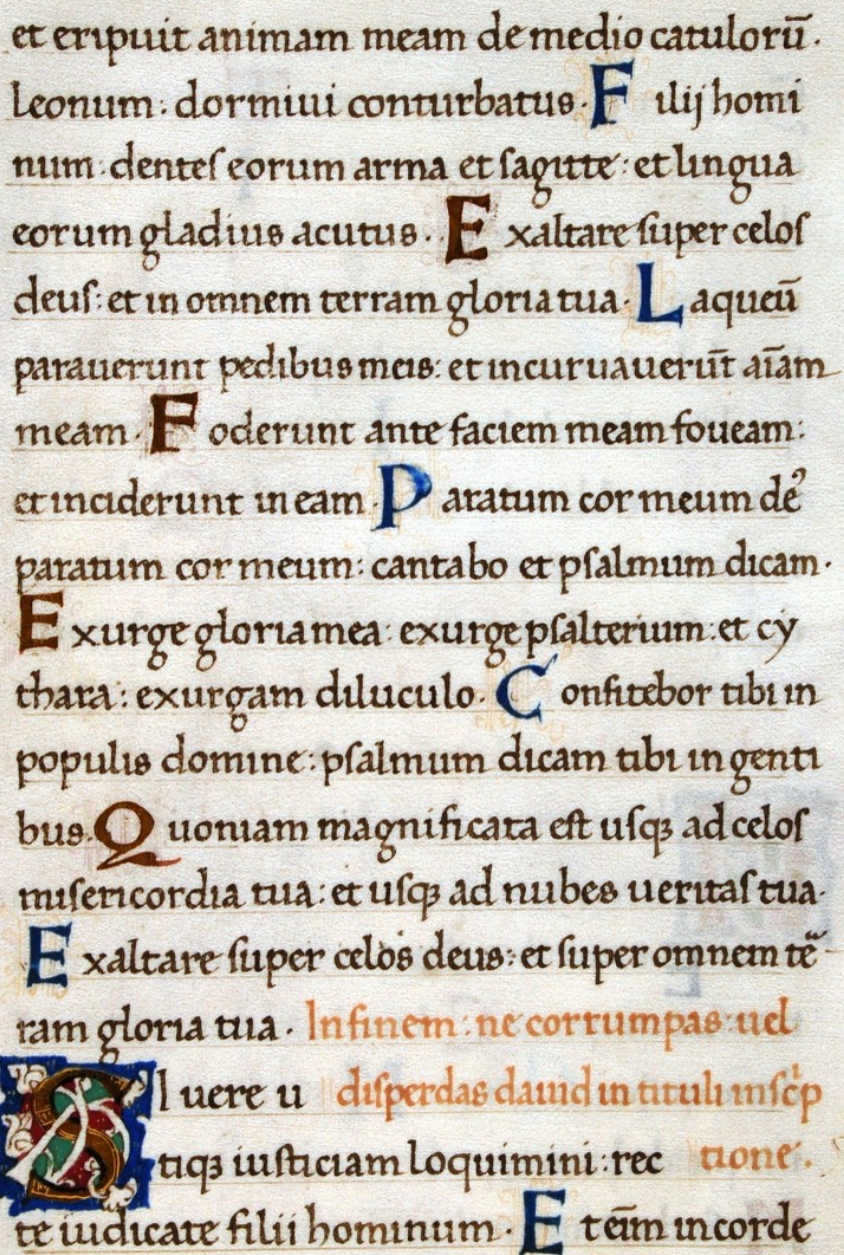 et eripuit animam meam de medio catulorū·
leonum: dormiui conturbatus· Filij homi
num: dentes eorum arma et sagitte: et lingua
eorum gladius acutus· Exaltare super celos
deus: et in omnem terram gloria tua· Laqueū
parauerunt pedibus meis: et incuruauerūt aīam
meam· Foderunt ante faciem meam foueam:
et inciderunt in eam· Paratum cor meum de᾽
paratum cor meum: cantabo et psalmum dicam·
Exurge gloria mea: exurge psalterium: et cy
thara: exurgam diluculo· Confitebor tibi in
populis domine: psalmum dicam tibi in genti
bus· Quoniam magnificata est usqꝫ ad celos
misericordia tua: et usqꝫ ad nubes ueritas tua·
Exaltare super celos deus: et super omnem teᷓ
ram gloria tua· In finem: ne corrumpas: uel
SI uere u disperdas dauid in tituli insc̓p
tiqꝫ iusticiam loquimini: rec tione·
te iudicate filii hominum· Eteīm in corde